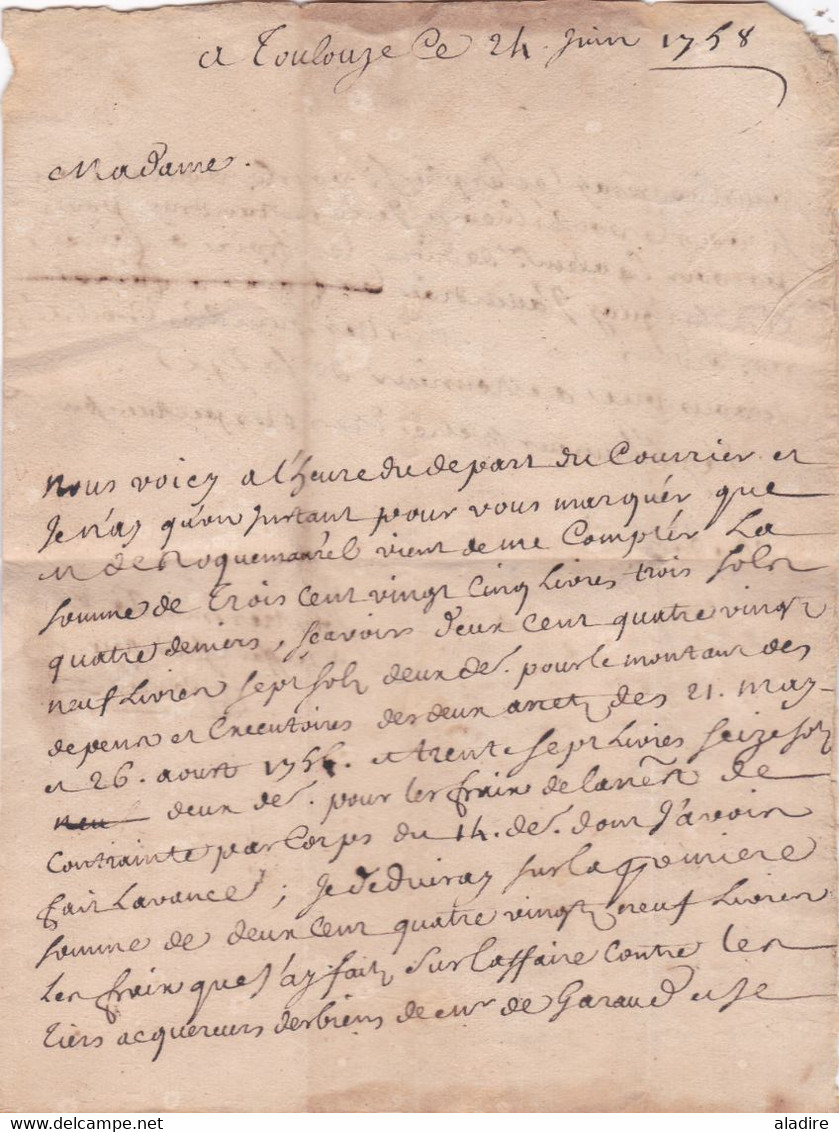 a Toulouze Ce 24 Juin 1758
Madame.
nous voicy a l'heure du depart du Courrier et
Je n'ay qu'un Instant pour vous marquér que
Mr de Roquemaurel vient de me Comptér La
somme de Trois cent vingt Cinq Livres trois solz
quatre deniers, scavoir deux Cent quatre vingt
neuf Livres sept solz deux de. pour le montant des
depens et Executoires des deux arretz des 21. may
et 26. aoust 1756. et trente sept Livres seize solz
deux de. pour les frais de l'arrest de
Contrainte par Corps du 14. de. dont J'avois
fait L'avance; Je deduiray sur la premiere
somme de deux Cent quatre vingt neuf Livres
Les frais que J'ay faitz sur l'affaire Contre les
tiers acquereurs des biens de Mr de Garaud et Je
aladire